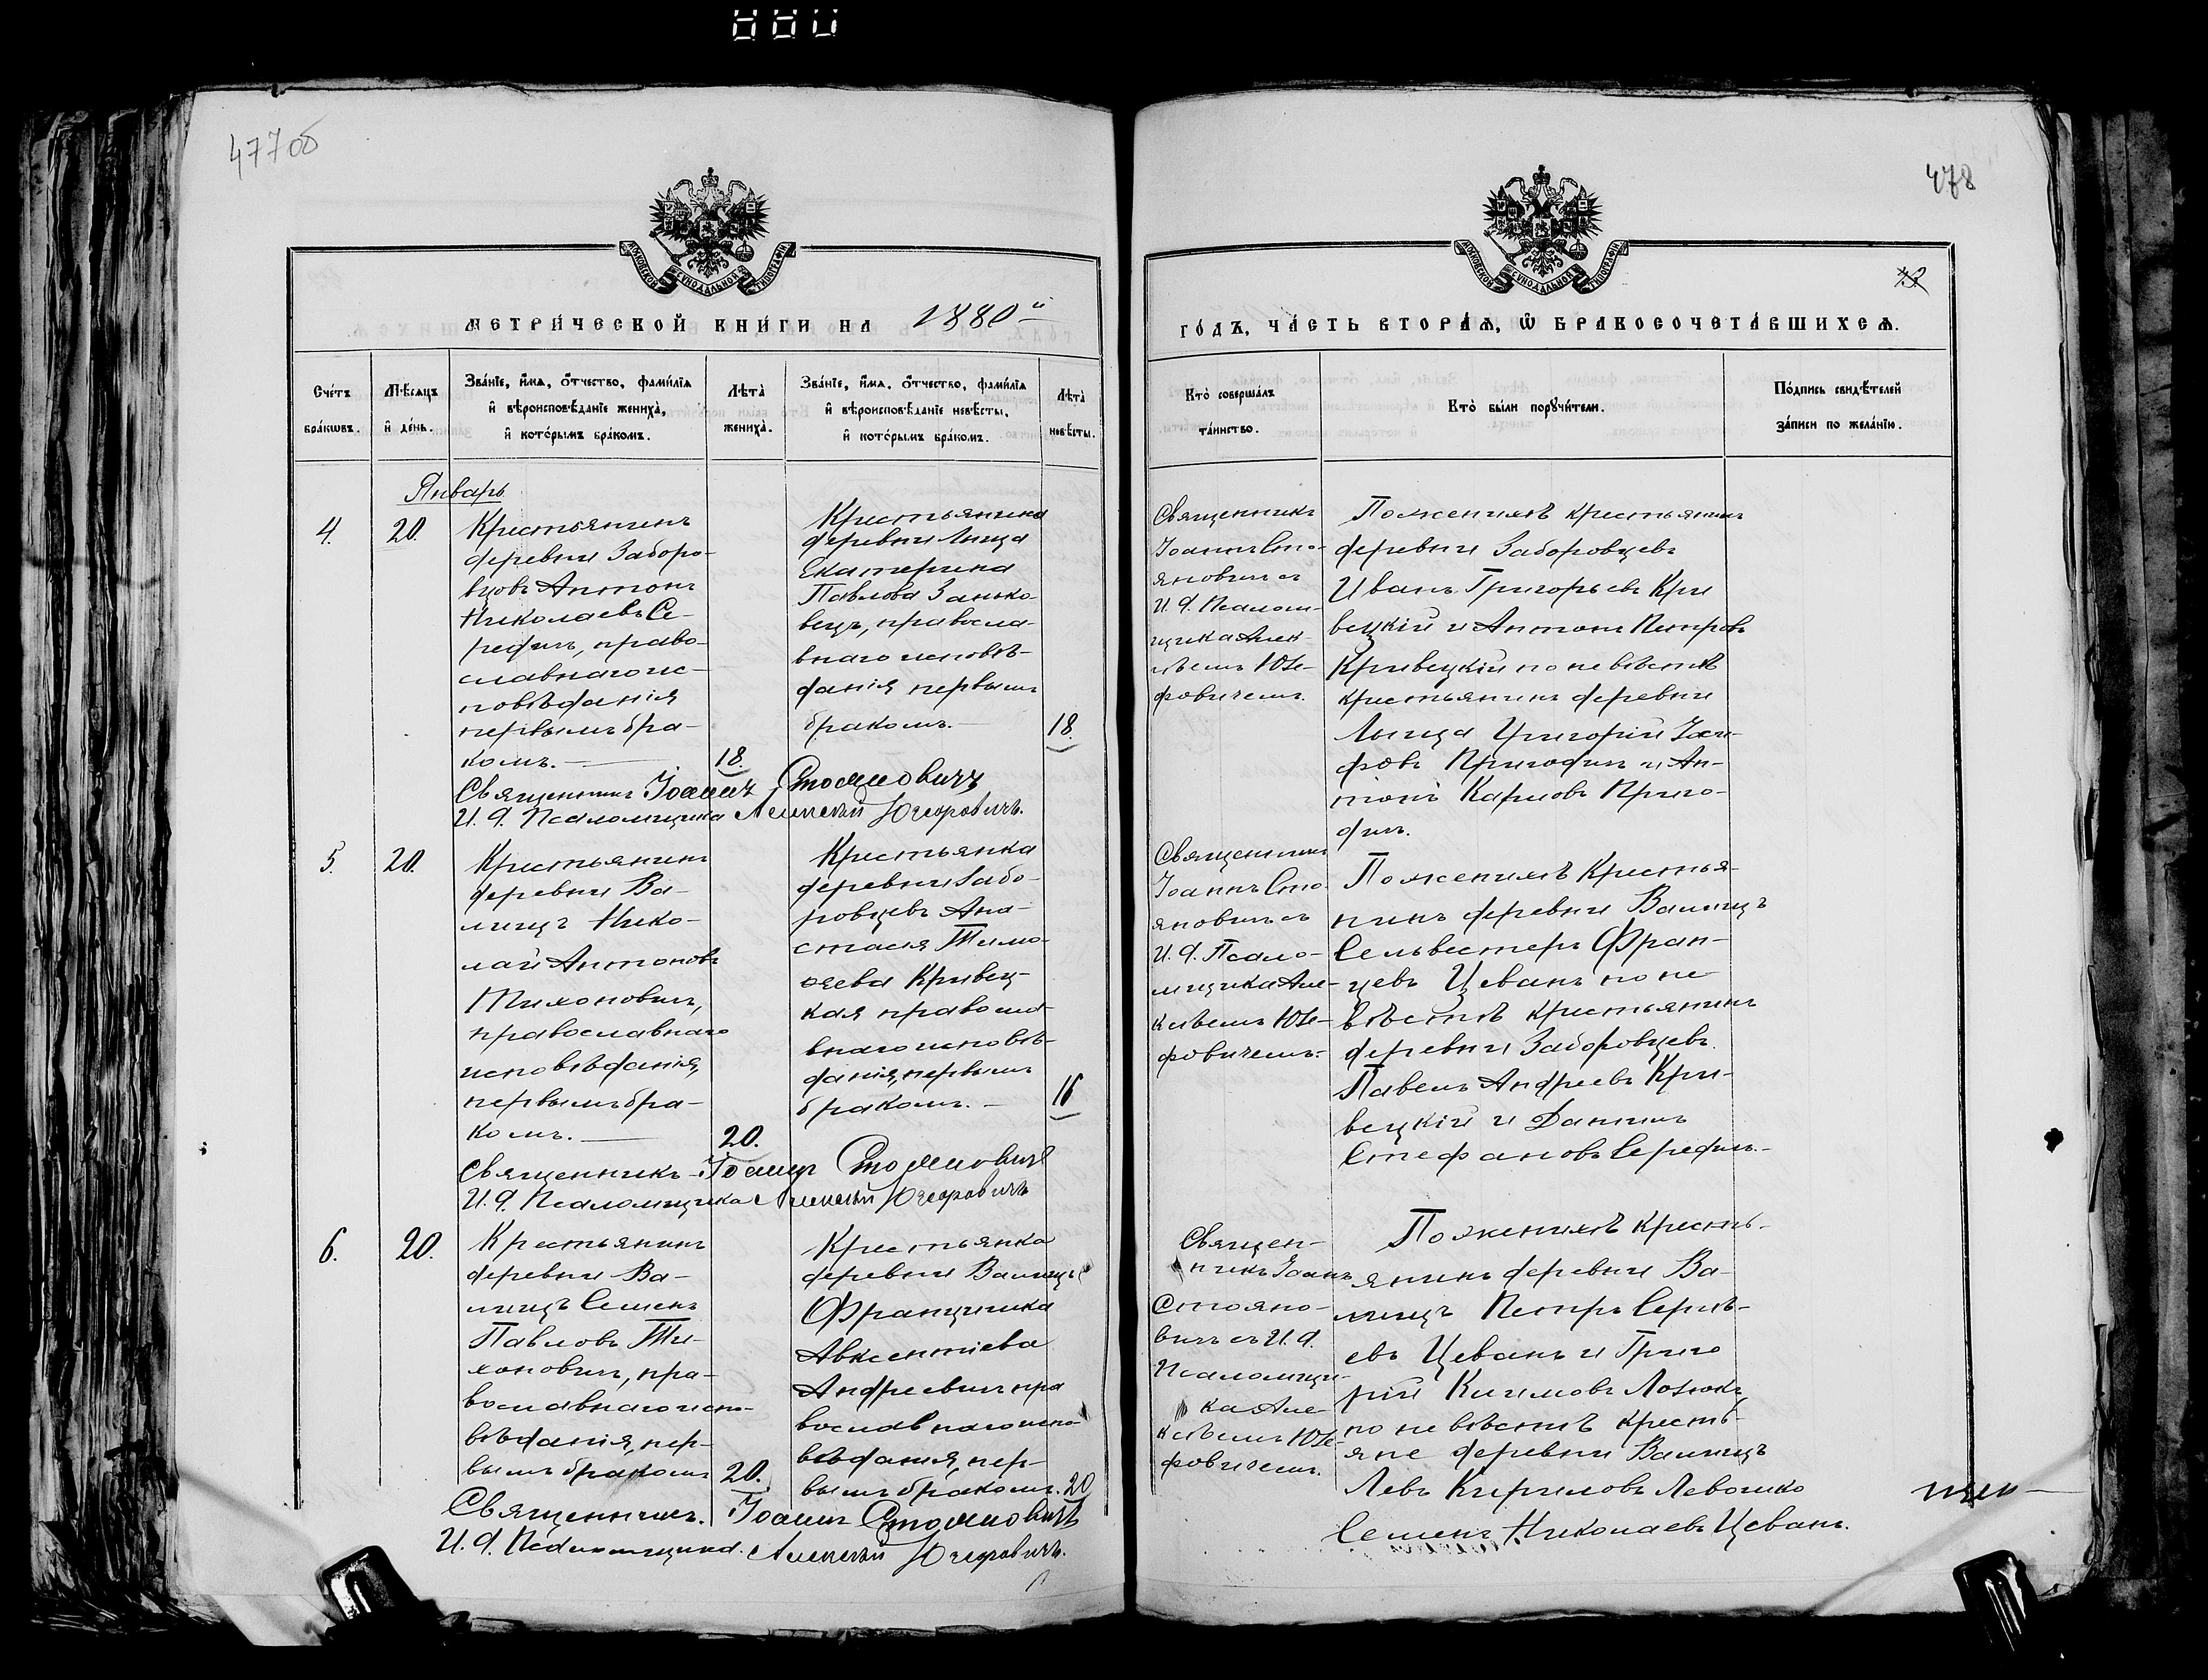 477об
478
МОСКОВСКОЙ СУНОДАЛЬНОЙ ТИПОГРАФІИ
МОСКОВСКОЙ СУНОДАЛЬНОЙ ТИПОГРАФІИ
МЕТРИ́ЧЕСКОЙ КНИ́ГИ НА 1880й
ГО́ДЪ, ЧА́СТЬ ВТОРА́Я, Ѿ БРАКОСОЧЕТА́ВШИХСѦ.
Сче́тъ бра́кѡвъ.
Мѣ́сяцъ и де́нь.
Зва́нїе, и́мѧ, о́тчество, фами́лїѧ
и вѣроисповѣ́данїе жениха̀,
и кото́рымъ бра́комъ.
Лѣта̀ жениха̀.
Зва́нїе, и́мѧ, о́тчество, фами́лїѧ
и вѣроисповѣ́данїе невѣ́сты,
и кото́рымъ бра́комъ.
Лѣта̀ невѣ́сты.
Кто̀ соверша́лъ
та́инство.
Кто̀ бы́ли порꙋчи́тели.
По́дпись свидѣ́телей
за́писи по жела́нїю.
Январь
4.
20.
Крестьянинъ
деревни Заборо-
вцовъ Антонъ
Николаевъ Се-
редичъ, право-
славнаго ис-
повѣданія
первымъ бра-
комъ.—
18.
Крестьянина
деревни Лыща
Екатерина
Павлова Занько-
вецъ, правосла-
внаго исповѣ-
данія первымъ
бракомъ.—
18.
Священникъ
Іоаннъ Сто-
яновичъ съ
И. д. Псалом-
щика Алек-
сѣемъ Юзе-
фовичемъ.
По женихѣ крестьянинъ
деревни Заборовцевъ
Иванъ Григорьевъ Кри
вецкій и Антонъ Петровъ
Кривецкій по невѣстѣ
крестьянинъ деревни
Лыща Григорій Іоси-
фовъ Пригодичъ и Ан-
тонъ Карповъ Приго-
дичъ.
Священникъ Іоаннъ Стояновичъ
И. д. Псаломщика Алексѣй Юзефовичъ.
5.
20.
Крестьянинъ
деревни Ва-
лищъ Нико-
лай Антоновъ
Тихоновичъ,
православнаго
исповѣданія,
первымъ бра-
комъ.—
20.
Крестьянка
деревни Забо-
ровцевъ Ана-
стасія Тимо-
ѳеева Кривец-
кая правосла-
внаго исповѣ-
данія, первымъ
бракомъ.—
16
Священникъ
Іоаннъ Сто-
яновичъ съ
И. д. Псало-
мщика Але-
ксѣемъ Юзе-
фовичемъ.
По женихѣ Крестья-
нинъ деревни Валищъ
Сельвестеръ Фран-
цевъ Цеванъ по не
вѣстѣ крестьянинъ
деревни Заборовцевъ
Павелъ Андреевъ Кри-
вецкій и Даниилъ
Стефановъ Середичъ.—
Священникъ Іоаннъ Стояновичъ
И. д. Псаломщика Алексѣй Юзефовичъ
6.
20.
Крестьянинъ
деревни Ва-
лищъ Семенъ
Павловъ Ти-
хоновичъ, пра-
вославнаго испо-
вѣданія, пер-
вымъ бракомъ
20.
Крестьянка
деревни Валищъ
Францишка
Авксентіева
Андреевичъ пра
вославнаго испо
вѣданія, пер-
вымъ бракомъ.
20
Священ-
никъ Іоаннъ
Стояно-
вичъ съ И. д.
Псаломщи-
ка Але-
ксѣемъ Юзе-
фовичемъ.
По женихѣ кресть-
янинъ деревни Ва-
лищъ Петръ Сергѣ-
евъ Цеванъ и Григо
рій Климовъ Лозюкъ
по невѣстѣ кресть-
яне деревни Валищъ
Левъ Кириловъ Левошко
Семенъ Николаевъ Цеванъ.
Священникъ. Іоаннъ Стояновичъ
И. д. Псаломщика. Алексѣй Юзефовичъ.